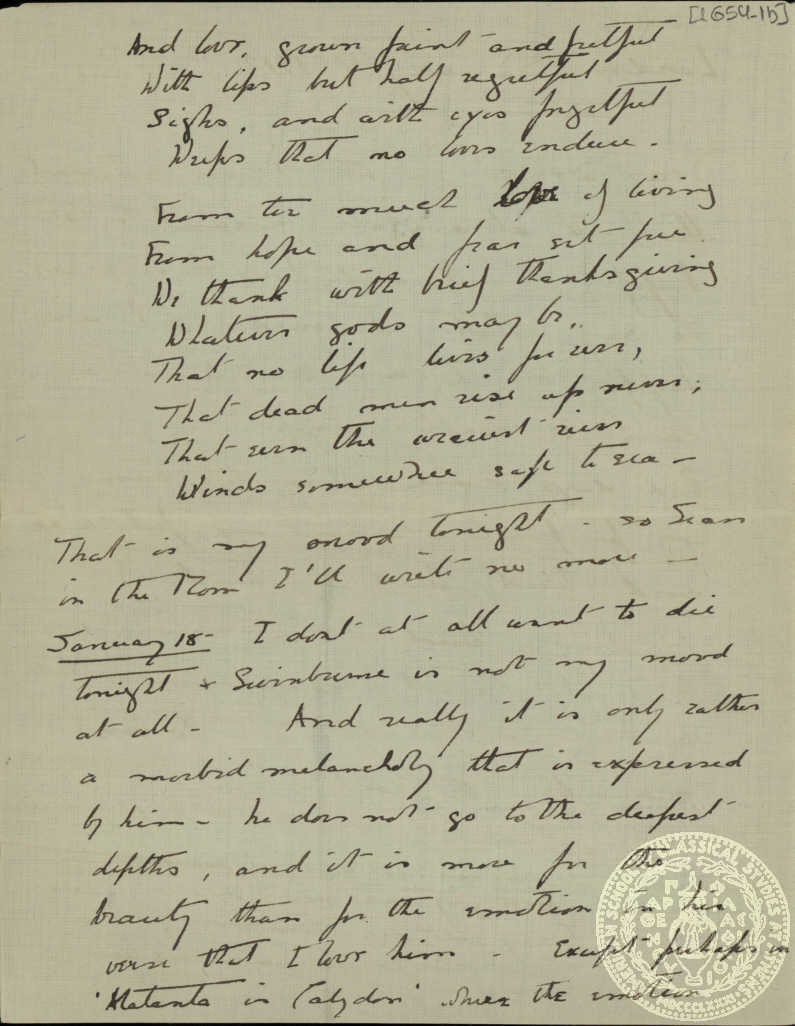 [2654-1b]
And love, grown faint and fretful
With lips but half regretful
Sighs, and with eyes forgetful
Weeps that no loves endure -
From too much love of living
From hope and fear set free
We thank with brief thanksgiving
Whatever gods may be,
That no life lives for ever,
That dead men rise up never;
That even the weariest river
Winds somewhere safe to sea -
That is my mood tonight - so
in the I'll write no more -
January 18 - I dont at all want to die
tonight & Swinburne is not my mood
at all - And really it is only rather
a morbid melancholy that is expressed
by him - he does not go to the deepest
depths, and it is more for the
beauty than for the emotion in his
verse that I love him - Except perhaps in
'Atalanta in Calydon' where the emotion